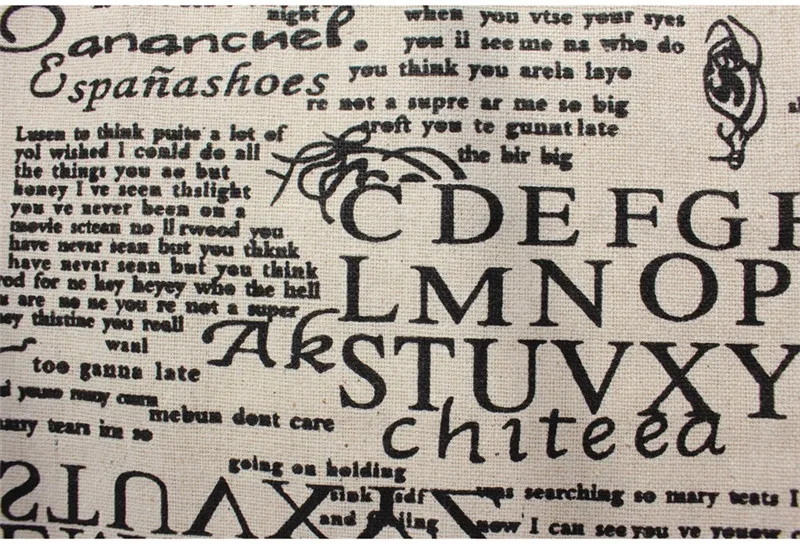 night
when you vtse your syes
ananchel.
you il see me na who do
Españashoes
you think you arela layo
re not a supre ar me so big
aroft you te gunnt late
the hir big
Lusen to think puite a lot of
yol wished I could do all
the things you ao but
honey I ve seen thslight
you ve never been on a
movie sctean no ll rwood you
have nevar sean but you thknk
have nevar sean but you think
for ne key heyey who the hell
are no ne you re not a super
thistine you reall
wanl
too ganna late
many
mebun dont care
many tears inn so
C D E F G
L M N O P
Ak
S T U V X Y
chiteea
going on holding
S T U V X
sink sdf searching so mary teats I
and now I can see you ve yenow